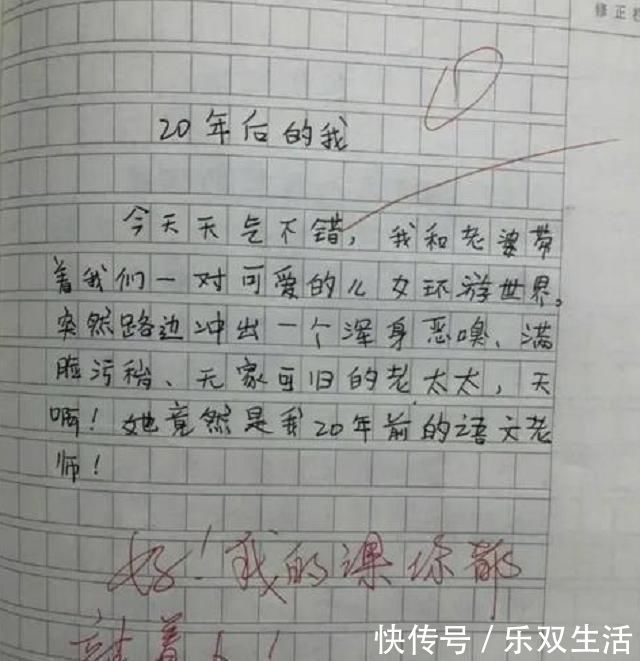 修正
20年后的我
今天天气不错，我和老婆带
着我们一对可爱的儿女环游世界。
突然路边冲出一个浑身恶嗅、满
脸污秽、无家可旧的老太太，天
啊！她竟然是我20年前的语文老
师！
好！我的课你都
站着上！
快传号／乐双生活